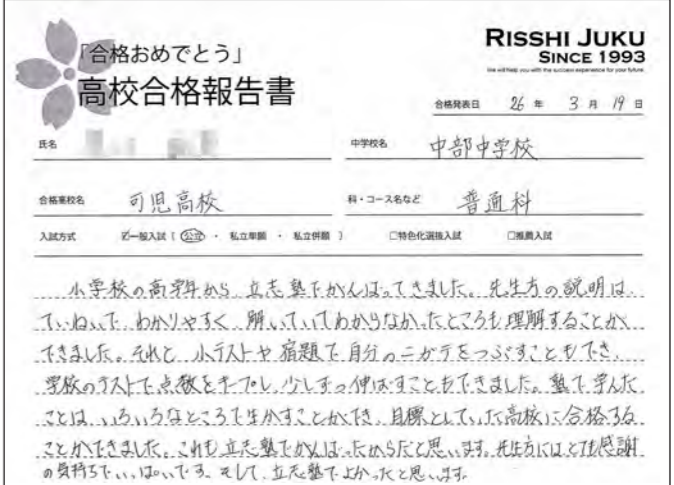 「合格おめでとう」
高校合格報告書
RISSHI JUKU
SINCE 1993
We will help you with the success experience for your future.
合格発表日 26 年 3 月 19 日
氏名
中学校名 中部中学校
合格高校名 可児高校
科・コース名など 普通科
入試方式 ☑一般入試 ( 公立 ・ 私立単願 ・ 私立併願 ) □特色化選抜入試 □推薦入試
小学校の高学年から、立志塾でがんばってきました。先生方の説明は、
ていねいで、わかりやすく、解いていてわからなかったところも理解することが
できました。それと、小テストや宿題で自分のニガテをつぶすこともでき、
学校のテストで点数をキープし、少しずつ伸ばすこともできました。塾で学んだ
ことは、いろいろなところで生かすことができ、目標としていた高校に合格する
ことができました。これも立志塾でがんばったからだと思います。先生方にはとても感謝
の気持ちでいっぱいです。そして、立志塾でよかったと思います。